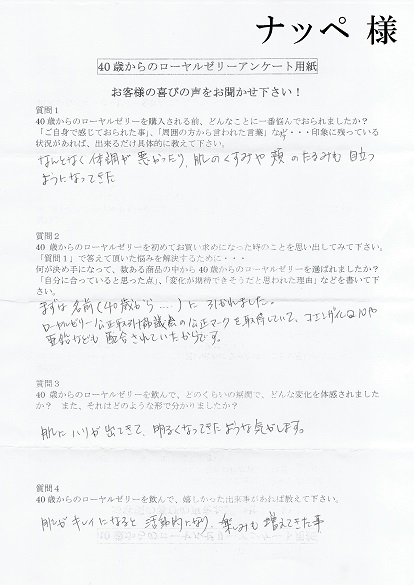 ナッペ 様
40歳からのローヤルゼリーアンケート用紙
お客様の喜びの声をお聞かせ下さい！
質問1
40歳からのローヤルゼリーを購入される前、どんなことに一番悩んでおられましたか？
「ご自身で感じておられた事」、「周囲の方から言われた言葉」など・・・印象に残っている
状況があれば、出来るだけ具体的に教えて下さい。
なんとなく体調が悪かったり、肌のくすみや頬のたるみも目立つ
ようになってきた
質問2
40歳からのローヤルゼリーを初めてお買い求めになった時のことを思い出してみて下さい。
「質問1」で答えて頂いた悩みを解決するために・・・
何が決め手になって、数ある商品の中から40歳からのローヤルゼリーを選ばれましたか？
「自分に合っていると思った点」、「変化が期待できそうだと思われた理由」などを書いて下
さい。
まずは名前(40歳から....)に引かれました。
ローヤルゼリー公正取引協議会の公正マークを取得していて、コエンザイムQ10や
亜鉛なども配合されていたからです。
質問3
40歳からのローヤルゼリーを飲んで、どのくらいの期間で、どんな変化を体感されました
か？ また、それはどのような形で分かりましたか？
肌にハリが出てきて、明るくなってきたような気がします。
質問4
40歳からのローヤルゼリーを飲んで、嬉しかった出来事があれば教えて下さい。
肌がキレイになると活動的になり、楽しみも増えてきた事